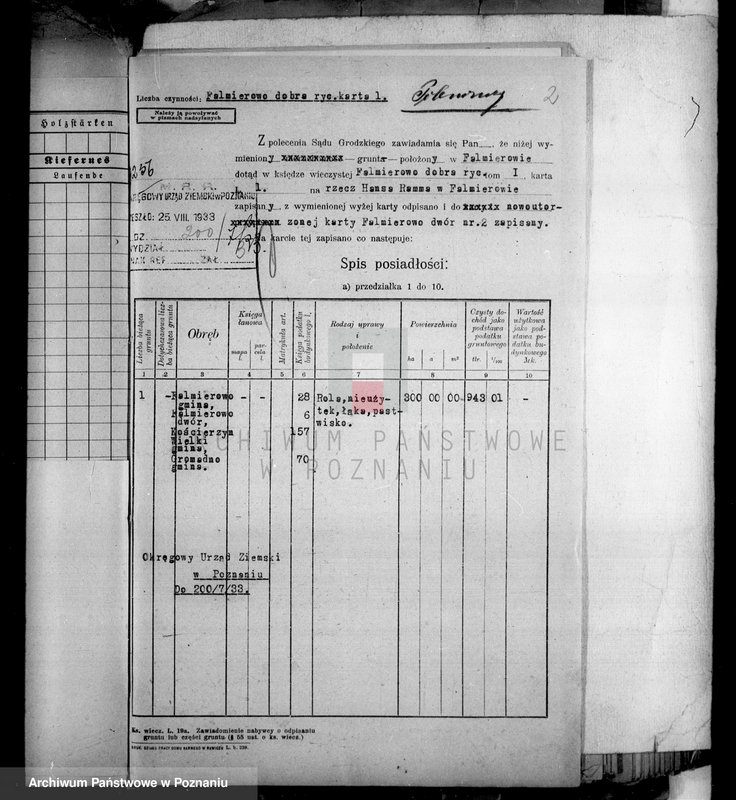 Holzstärken
Kiefernes
Laufende
2
Liczba czynności: Falmierowo dobra ryc.karta 1.
Należy ją powoływać
w pismach nadsyłanych
Z polecenia Sądu Grodzkiego zawiadamia się Pan że niżej wy-
mieniony xxxxxxxxxx grunt położony w Falmierowie
dotąd w księdze wieczystej Falmierowo dobra ryc. tom I karta
1. na rzecz Hansa Ramma w Falmierowie
zapisany z wymienionej wyżej karty odpisano i do xxxxxx nowoutor-
xxxxxxxx zonej karty Falmierowo dwór nr.2 zapisany.
karcie tej zapisano co następuje:
256
URZĄD ZIEMSKI w POZNANIU
25. VIII. 1933
200/
WYDZIAŁ
REF. ZAŁ.
Spis posiadłości:
a) przedziałka 1 do 10.
Liczba bieżąca gruntu
Dotychczasowa liczba bieżąca gruntu
Obręb
Księga łanowa
mapa l.
parcela l.
Matrykuła art.
Księga podatku budynkowego l.
Rodzaj uprawy i położenie
Powierzchnia
ha a m²
Czysty dochód jako podstawa podatku gruntowego
tlr.
Wartość użytkowa jako podstawa podatku budynkowego Mk.
1 2 3 4 5 6 7 8 9 10
1 - Falmierowo - - 28 Rola,nieuży- 300 00 00 943 01 -
gmina, tek,łąka,past-
Falmierowo 6 wisko.
dwór,
Kościerzyn 157
Wielki
gmina,
Gromadno 70
gmina.
ARCHIWUM PAŃSTWOWE
W POZNANIU
Okręgowy Urząd Ziemski
w Poznaniu
Do 200/7/33.
Ks. wiecz. L. 19a. Zawiadomienie nabywcy o odpisaniu
gruntu lub części gruntu (§ 55 ust. o ks. wiecz.)
L. b. 239.
Archiwum Państwowe w Poznaniu